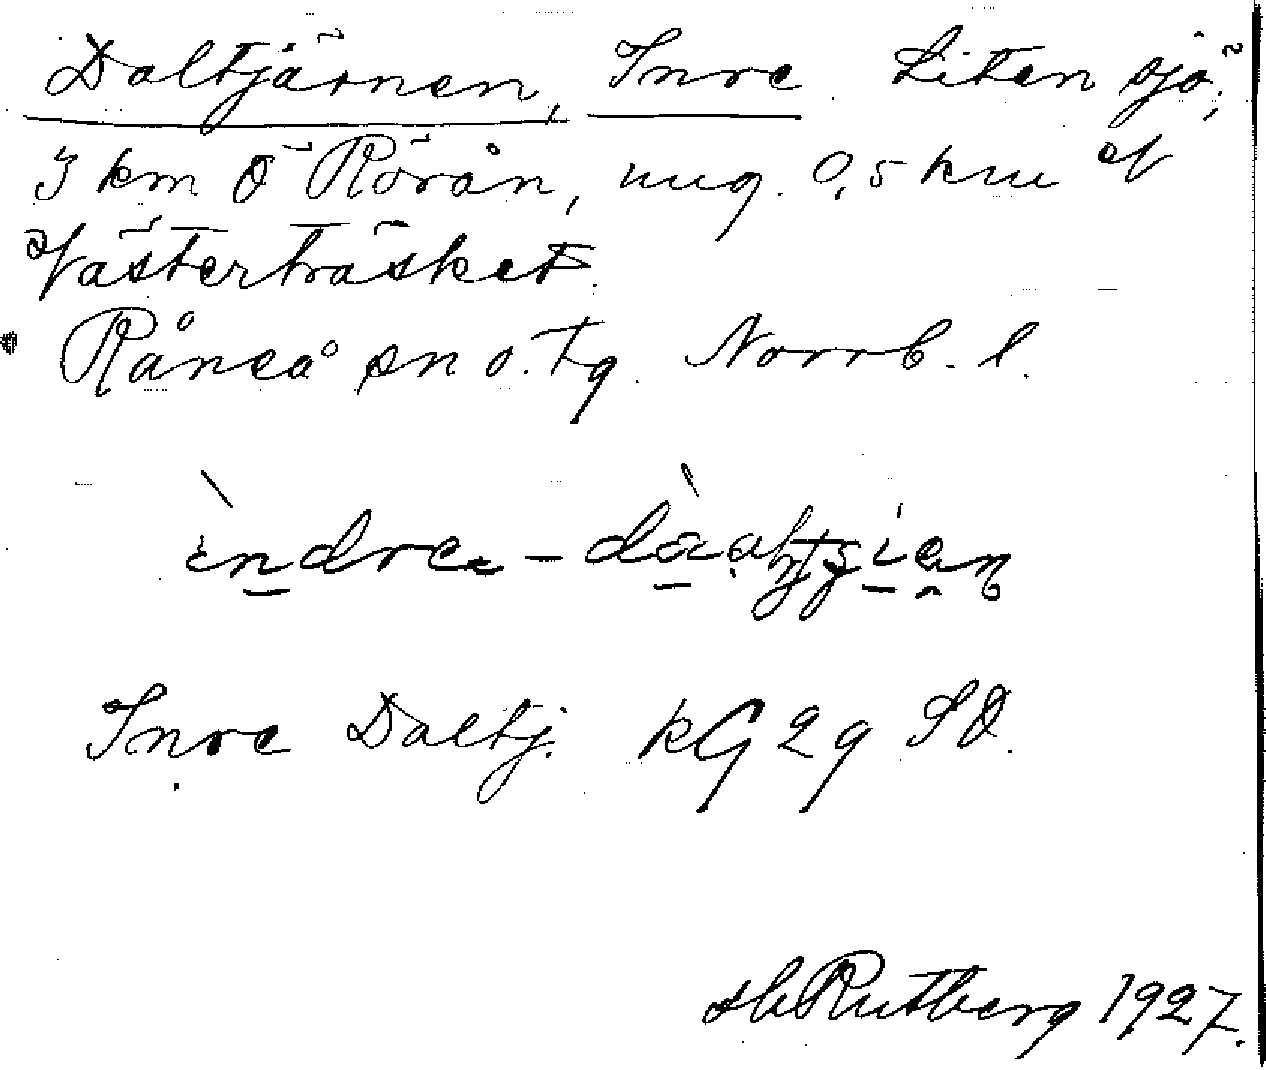 Daltjärnen, Inre Liten sjö,
3 km Ö Rörån, ung. 0,5 km V
Västerträsket.
Råneå sn o. tg. Norrb. l.
Inre Daltj. KG 29 SO.
H Rutberg 1927.